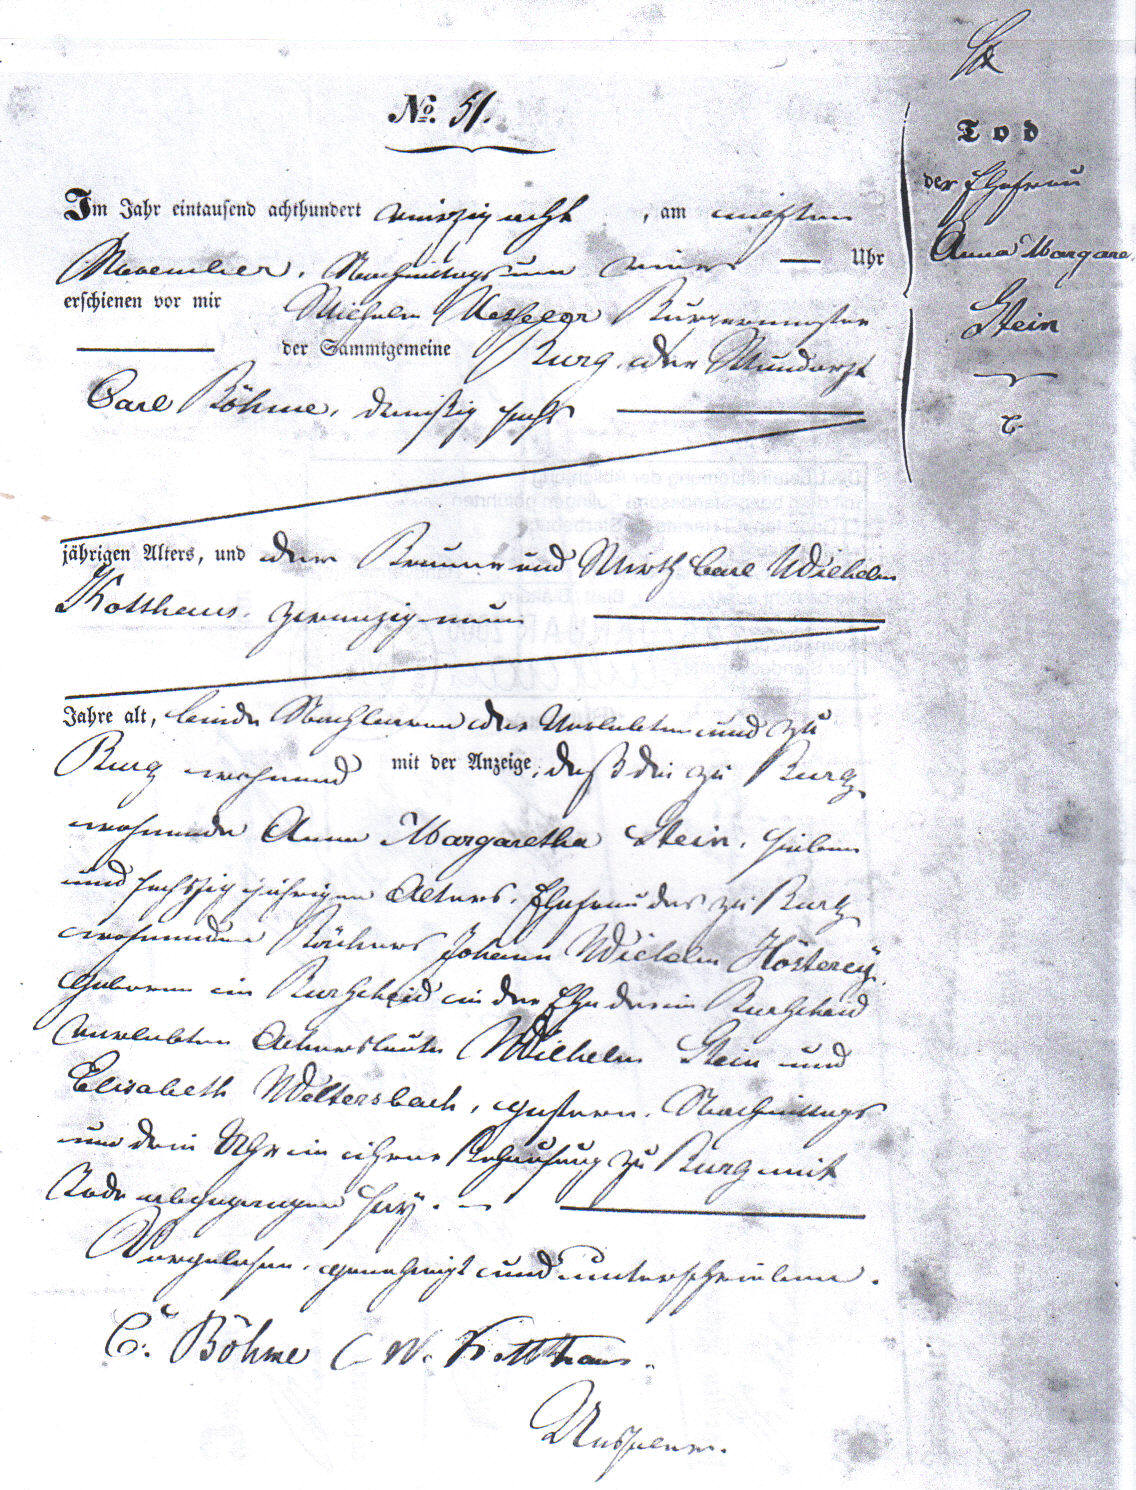 No. 51.
Im Jahr eintausend achthundert vierzig acht, am
November, Nachmittags um vier — Uhr
erschienen vor mir Wilhelm Bürgermeister
der Sammtgemeine Burg, der Wundarzt
Carl Böhme, dreißig sechs
jährigen Alters, und der Brauer und Wirth Carl Wilhelm
Kotthaus, zwanzig neun
Jahre alt, beide Nachbaren der Verlebten und zu
Burg wohnend mit der Anzeige, daß die zu Burg
wohnende Anna Margaretha Stein, sieben
und sechszig jährigen Alters, Ehefrau des zu Burg
wohnenden Bäckers Johann Wilhelm Hösterey,
geboren in Burscheid in der Ehe der in Burscheid
verlebten Ackersleute Wilhelm Stein und
Elisabeth Weltersbach, gestern, Nachmittags
um drei Uhr in ihrer Behausung zu Burg mit
Tode abgegangen sey. —
Vorgelesen, genehmigt und unterschrieben.
C. Böhme C W. Kotthaus.
Tod
der Ehefrau
Anna Margare
Stein